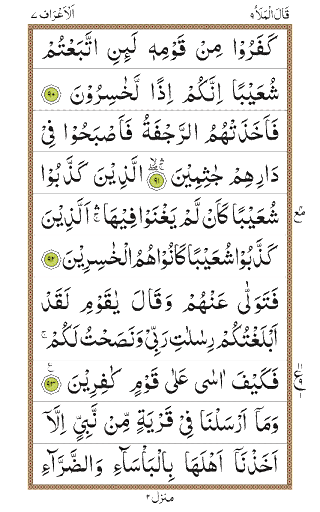 قَالَ الْمَلَاُ ٩ اَلْاَعْرَاف ٧
كَفَرُوْا مِنْ قَوْمِهٖ لَىِٕنِ اتَّبَعْتُمْ
شُعَيْبًا اِنَّكُمْ اِذًا لَّخٰسِرُوْنَ ٩٠
فَاَخَذَتْهُمُ الرَّجْفَةُ فَاَصْبَحُوْا فِيْ
دَارِهِمْ جٰثِمِيْنَ ٩١ الَّذِيْنَ كَذَّبُوْا
شُعَيْبًا كَاَنْ لَّمْ يَغْنَوْا فِيْهَا ۛ اَلَّذِيْنَ
كَذَّبُوْا شُعَيْبًا كَانُوْا هُمُ الْخٰسِرِيْنَ ٩٢
فَتَوَلّٰى عَنْهُمْ وَقَالَ يٰقَوْمِ لَقَدْ
اَبْلَغْتُكُمْ رِسٰلٰتِ رَبِّيْ وَنَصَحْتُ لَكُمْ ۚ
فَكَيْفَ اٰسٰى عَلٰى قَوْمٍ كٰفِرِيْنَ ٩٣
وَمَاۤ اَرْسَلْنَا فِيْ قَرْيَةٍ مِّنْ نَّبِيٍّ اِلَّاۤ
اَخَذْنَاۤ اَهْلَهَا بِالْبَاْسَآءِ وَالضَّرَّآءِ
منزل ٢